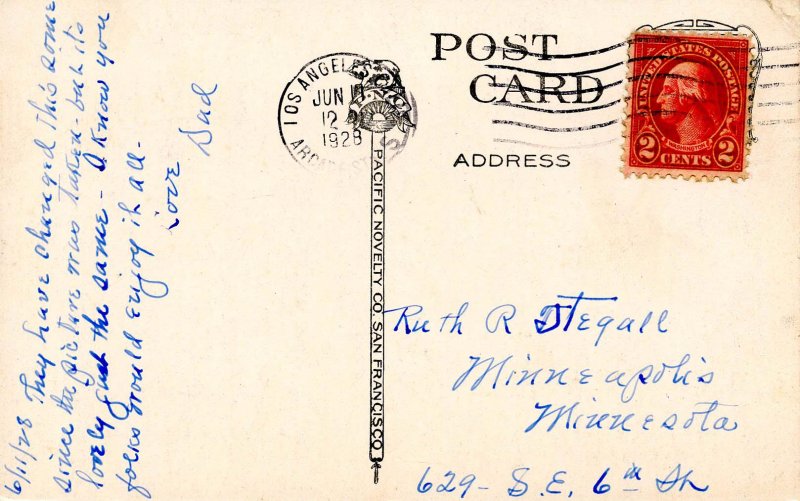 6/11/28 They have changed this some
since the picture was taken - but its
lovely just the same - I know you
folks would enjoy it all -
Love
Dad
LOS ANGELES
JUN
12
1928
ARCADE ST
PACIFIC NOVELTY CO. SAN FRANCISCO
POST
CARD
ADDRESS
UNITED STATES POSTAGE
WASHINGTON
2 CENTS 2
Ruth R Stegall
Minneapolis
Minnesota
629 - S.E. 6th St